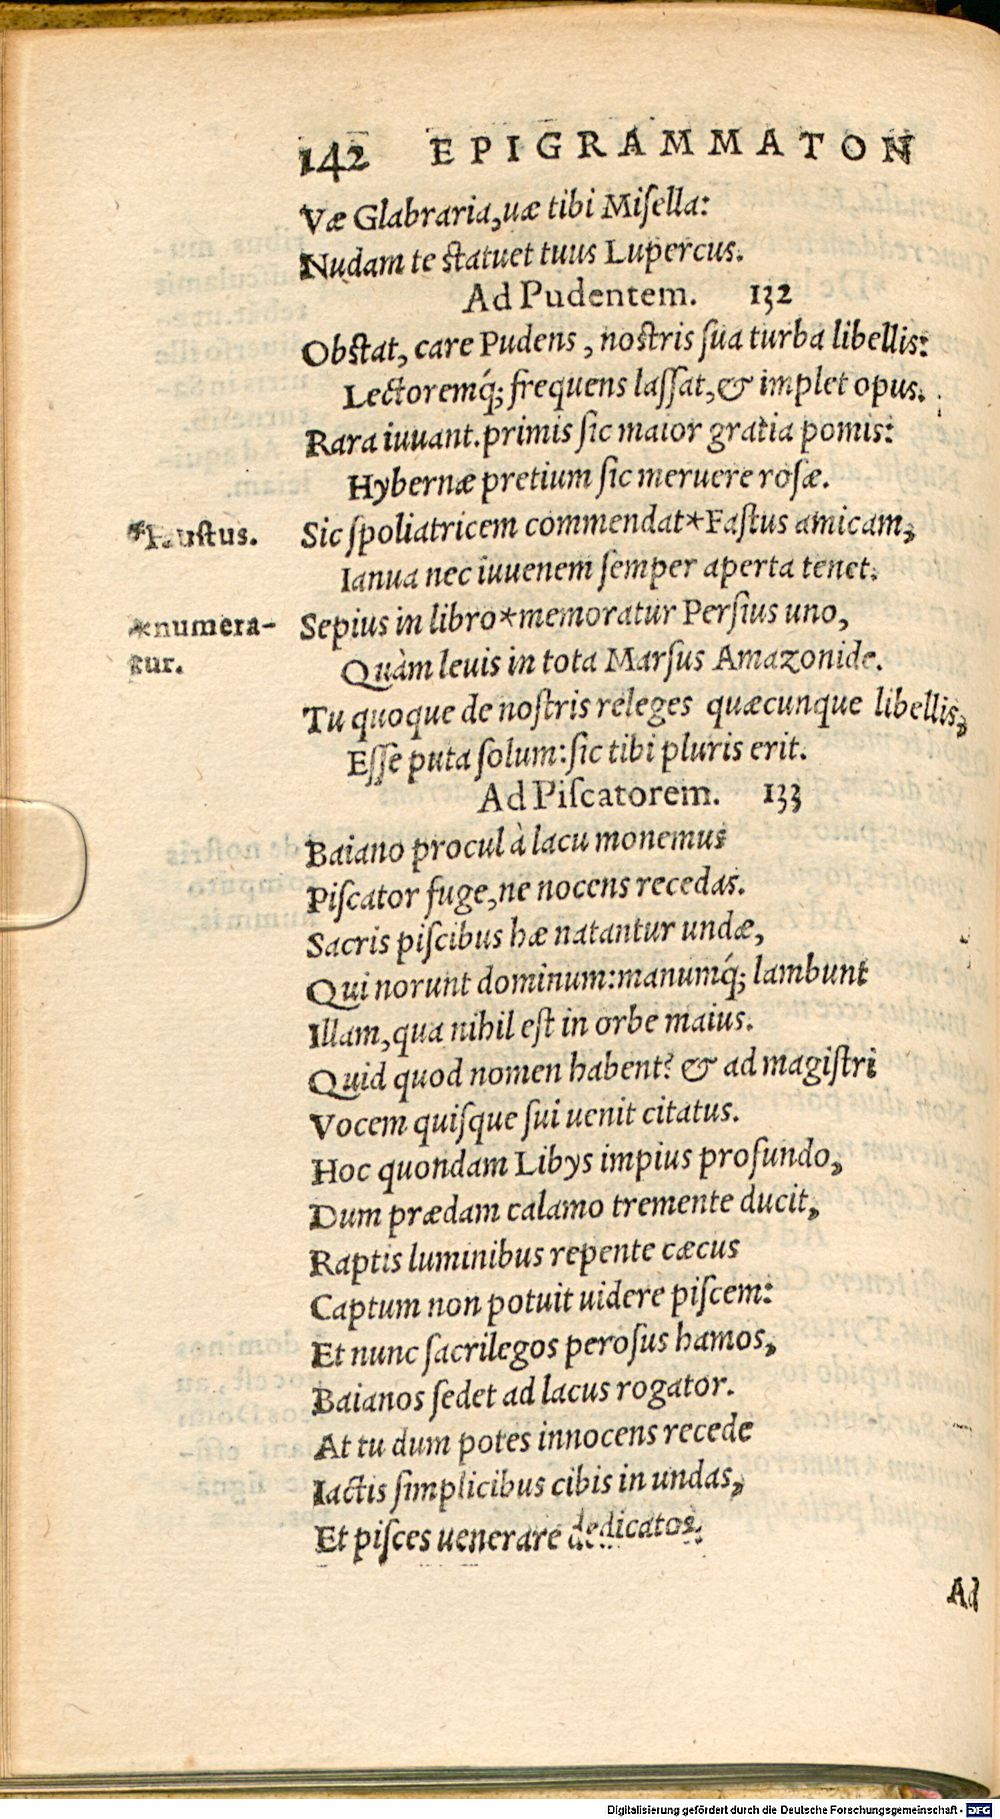 142 EPIGRAMMATON
Væ Glabraria,uæ tibi Miſella:
Nudam te ſtatuet tuus Lupercus.
Ad Pudentem. 132
Obſtat, care Pudens , noſtris ſua turba libellis:
Lectoremq́; frequens laſſat,& implet opus.
Rara iuuant.primis ſic maior gratia pomis:
Hybernæ pretium ſic meruere roſæ.
*Fauſtus.
Sic ſpoliatricem commendat*Faſtus amicam,
Ianua nec iuuenem ſemper aperta tenet.
*numera-
tur.
Sepius in libro*memoratur Perſius uno,
Quàm leuis in tota Marſus Amazonide.
Tu quoque de noſtris releges quæcunque libellis,
Eſſe puta ſolum:ſic tibi pluris erit.
Ad Piſcatorem. 133
Baiano procul à lacu monemus
Piſcator fuge,ne nocens recedas.
Sacris piſcibus hæ natantur undæ,
Qui norunt dominum:manumq́; lambunt
Illam,qua nihil eſt in orbe maius.
Quid quod nomen habent? & ad magiſtri
Vocem quiſque ſui uenit citatus.
Hoc quondam Libys impius profundo,
Dum prædam calamo tremente ducit,
Raptis luminibus repente cæcus
Captum non potuit uidere piſcem:
Et nunc ſacrilegos peroſus hamos,
Baianos ſedet ad lacus rogator.
At tu dum potes innocens recede
Iactis ſimplicibus cibis in undas,
Et piſces uenerare dedicatos.
Ad
Digitalisierung gefördert durch die Deutsche Forschungsgemeinschaft - DFG